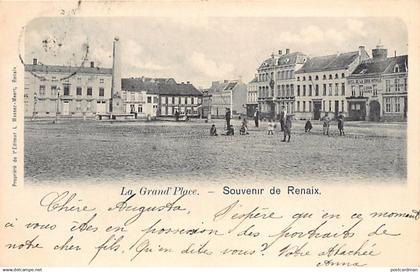 Propriété de l'Editeur L. Monnier-Maert, Renaix
La Grand'Place. - Souvenir de Renaix.
Chère Augusta, J'espère que en ce moment
vous êtes en possession des portraits de
notre cher fils. Qu'en dites vous? Votre Attachée
Anna